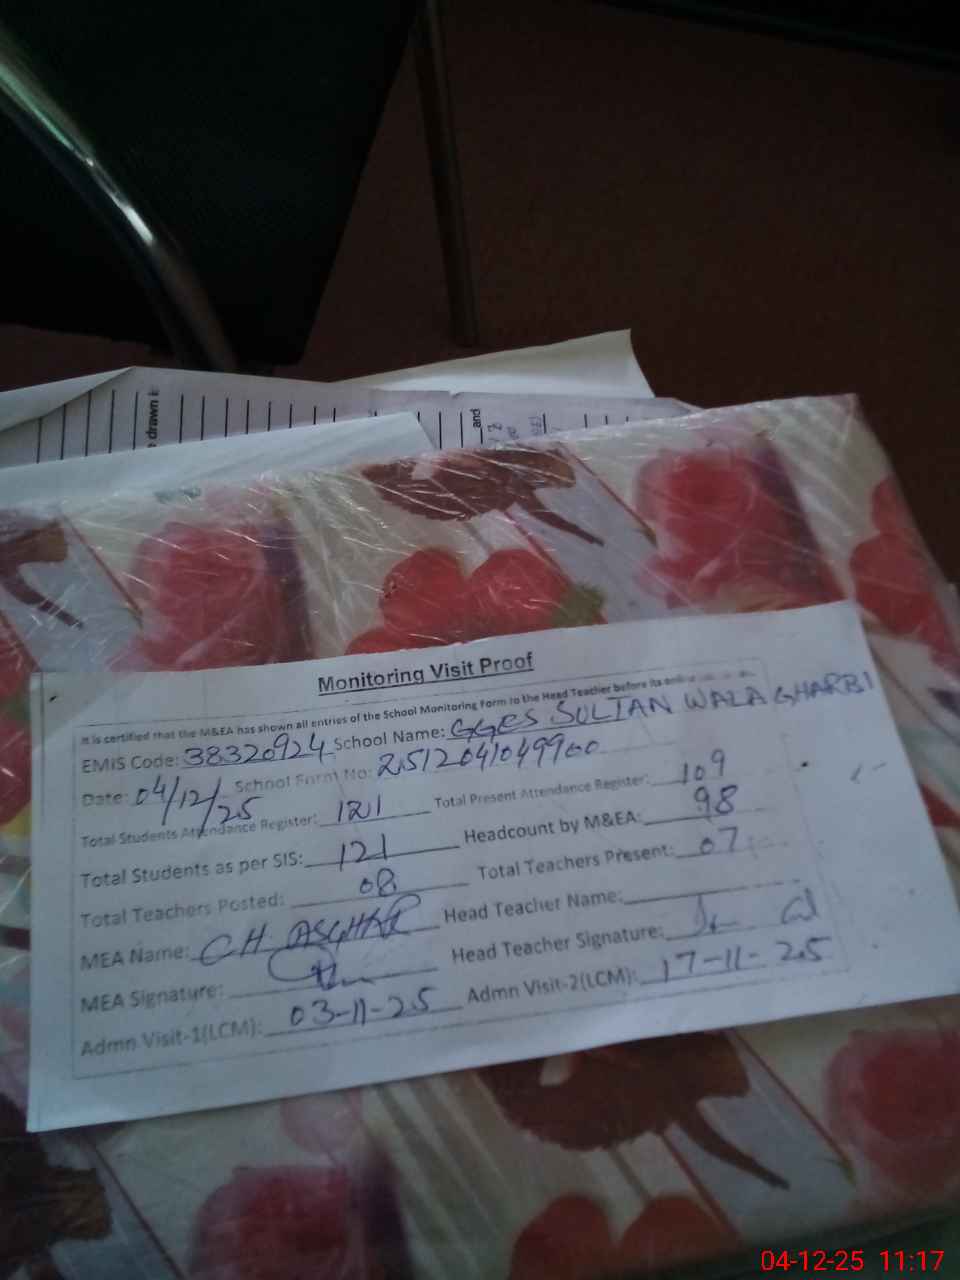 drawn i
and
Monitoring Visit Proof
It is certified that the M&EA has shown all entries of the School Monitoring Form to the Head Teacher before its online
EMIS Code: 38320924 School Name: GGES SULTAN WALA GHARBI
Date: 04/12/25 School Form No: 251204104990 0
Total Students Attendance Register: 121 Total Present Attendance Register: 109
Total Students as per SIS: 121 Headcount by M&EA: 98
Total Teachers Posted: 08 Total Teachers Present: 07
MEA Name: CH ASGHAR Head Teacher Name:
MEA Signature: Head Teacher Signature:
Admn Visit-1(LCM): 03-11-25 Admn Visit-2(LCM): 17-11-25
04-12-25 11:17